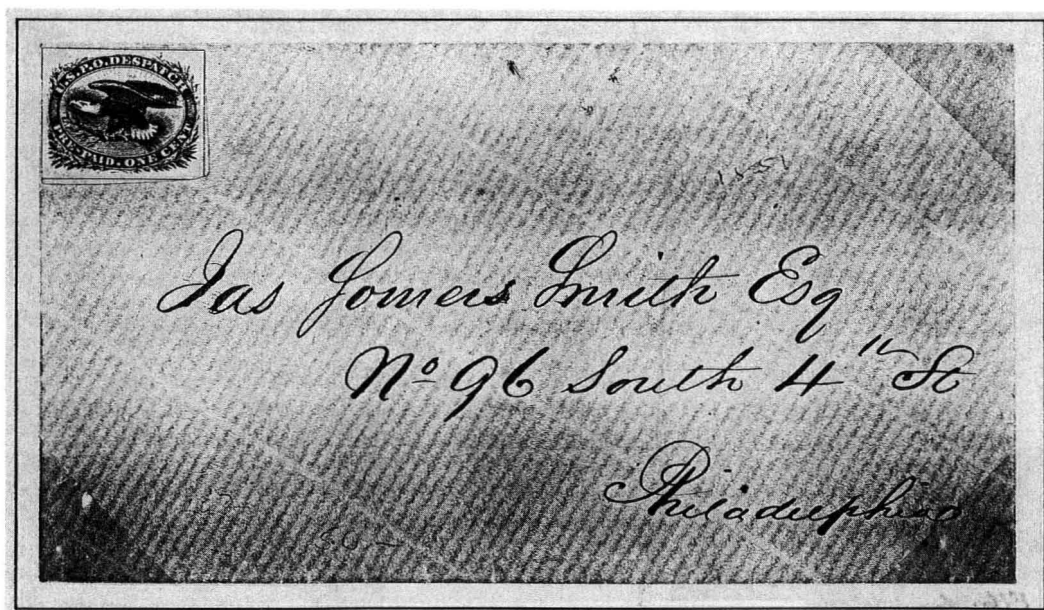 U.S.P.O. DESPATCH
PRE-PAID-ONE CENT
1851
Jas Somers Smith Esq
No 96 South 4th St
Philadelphia